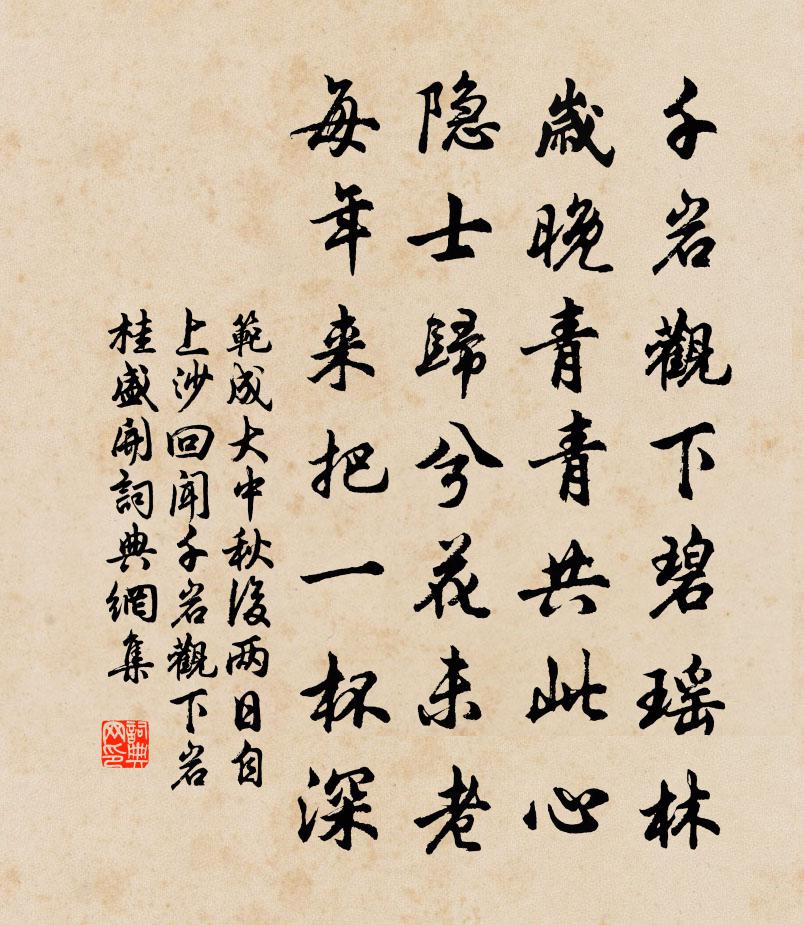 千岩觀下碧瑶林
歲晚青青共此心
隐士歸兮花未老
每年来把一杯深
範成大中秋後两日自
上沙回闻千岩觀下岩
桂盛開詞典網集
詞典網印